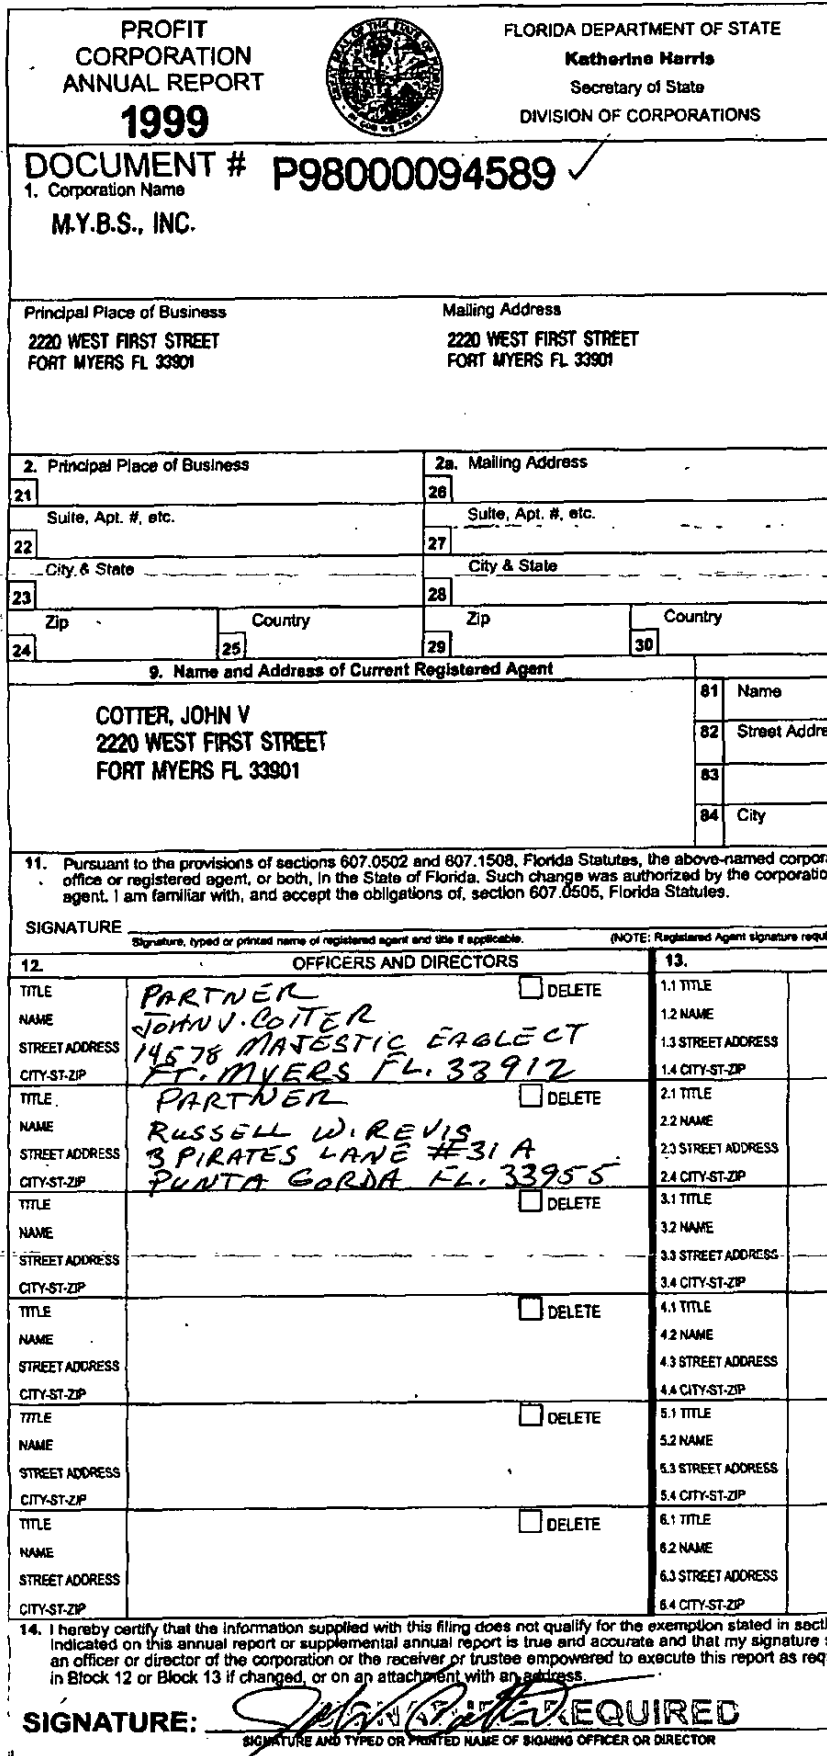 PROFIT
CORPORATION
ANNUAL REPORT
1999
FLORIDA DEPARTMENT OF STATE
Katherine Harris
Secretary of State
DIVISION OF CORPORATIONS
DOCUMENT # P98000094589
1. Corporation Name
M.Y.B.S., INC.
Principal Place of Business
2220 WEST FIRST STREET
FORT MYERS FL 33901
Mailing Address
2220 WEST FIRST STREET
FORT MYERS FL 33901
2. Principal Place of Business
2a. Mailing Address
21
26
Suite, Apt. #, etc.
Suite, Apt. #, etc.
22
27
City & State
City & State
23
28
Zip
Country
Zip
Country
24
25
29
30
9. Name and Address of Current Registered Agent
COTTER, JOHN V
2220 WEST FIRST STREET
FORT MYERS FL 33901
81 Name
82 Street Addre
83
84 City
11. Pursuant to the provisions of sections 607.0502 and 607.1508, Florida Statutes, the above-named corpor
office or registered agent, or both, in the State of Florida. Such change was authorized by the corporatio
agent. I am familiar with, and accept the obligations of, section 607.0505, Florida Statutes.
SIGNATURE
Signature, typed or printed name of registered agent and title if applicable.
(NOTE: Registered Agent signature requi
12. OFFICERS AND DIRECTORS
13.
TITLE PARTNER DELETE 1.1 TITLE
NAME JOHN V. COTTER 1.2 NAME
STREET ADDRESS 14578 MAJESTIC EAGLE CT 1.3 STREET ADDRESS
CITY-ST-ZIP FT. MYERS FL. 33912 1.4 CITY-ST-ZIP
TITLE PARTNER DELETE 2.1 TITLE
NAME RUSSELL W. REVIS 2.2 NAME
STREET ADDRESS 3 PIRATES LANE #31 A 2.3 STREET ADDRESS
CITY-ST-ZIP PUNTA GORDA FL. 33955 2.4 CITY-ST-ZIP
TITLE DELETE 3.1 TITLE
NAME 3.2 NAME
STREET ADDRESS 3.3 STREET ADDRESS
CITY-ST-ZIP 3.4 CITY-ST-ZIP
TITLE DELETE 4.1 TITLE
NAME 4.2 NAME
STREET ADDRESS 4.3 STREET ADDRESS
CITY-ST-ZIP 4.4 CITY-ST-ZIP
TITLE DELETE 5.1 TITLE
NAME 5.2 NAME
STREET ADDRESS 5.3 STREET ADDRESS
CITY-ST-ZIP 5.4 CITY-ST-ZIP
TITLE DELETE 6.1 TITLE
NAME 6.2 NAME
STREET ADDRESS 6.3 STREET ADDRESS
CITY-ST-ZIP 6.4 CITY-ST-ZIP
14. I hereby certify that the information supplied with this filing does not qualify for the exemption stated in secti
indicated on this annual report or supplemental annual report is true and accurate and that my signature
an officer or director of the corporation or the receiver or trustee empowered to execute this report as req
in Block 12 or Block 13 if changed, or on an attachment with an address.
SIGNATURE: SIGNATURE REQUIRED
SIGNATURE AND TYPED OR PRINTED NAME OF SIGNING OFFICER OR DIRECTOR